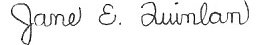 Jane E. Quinlan